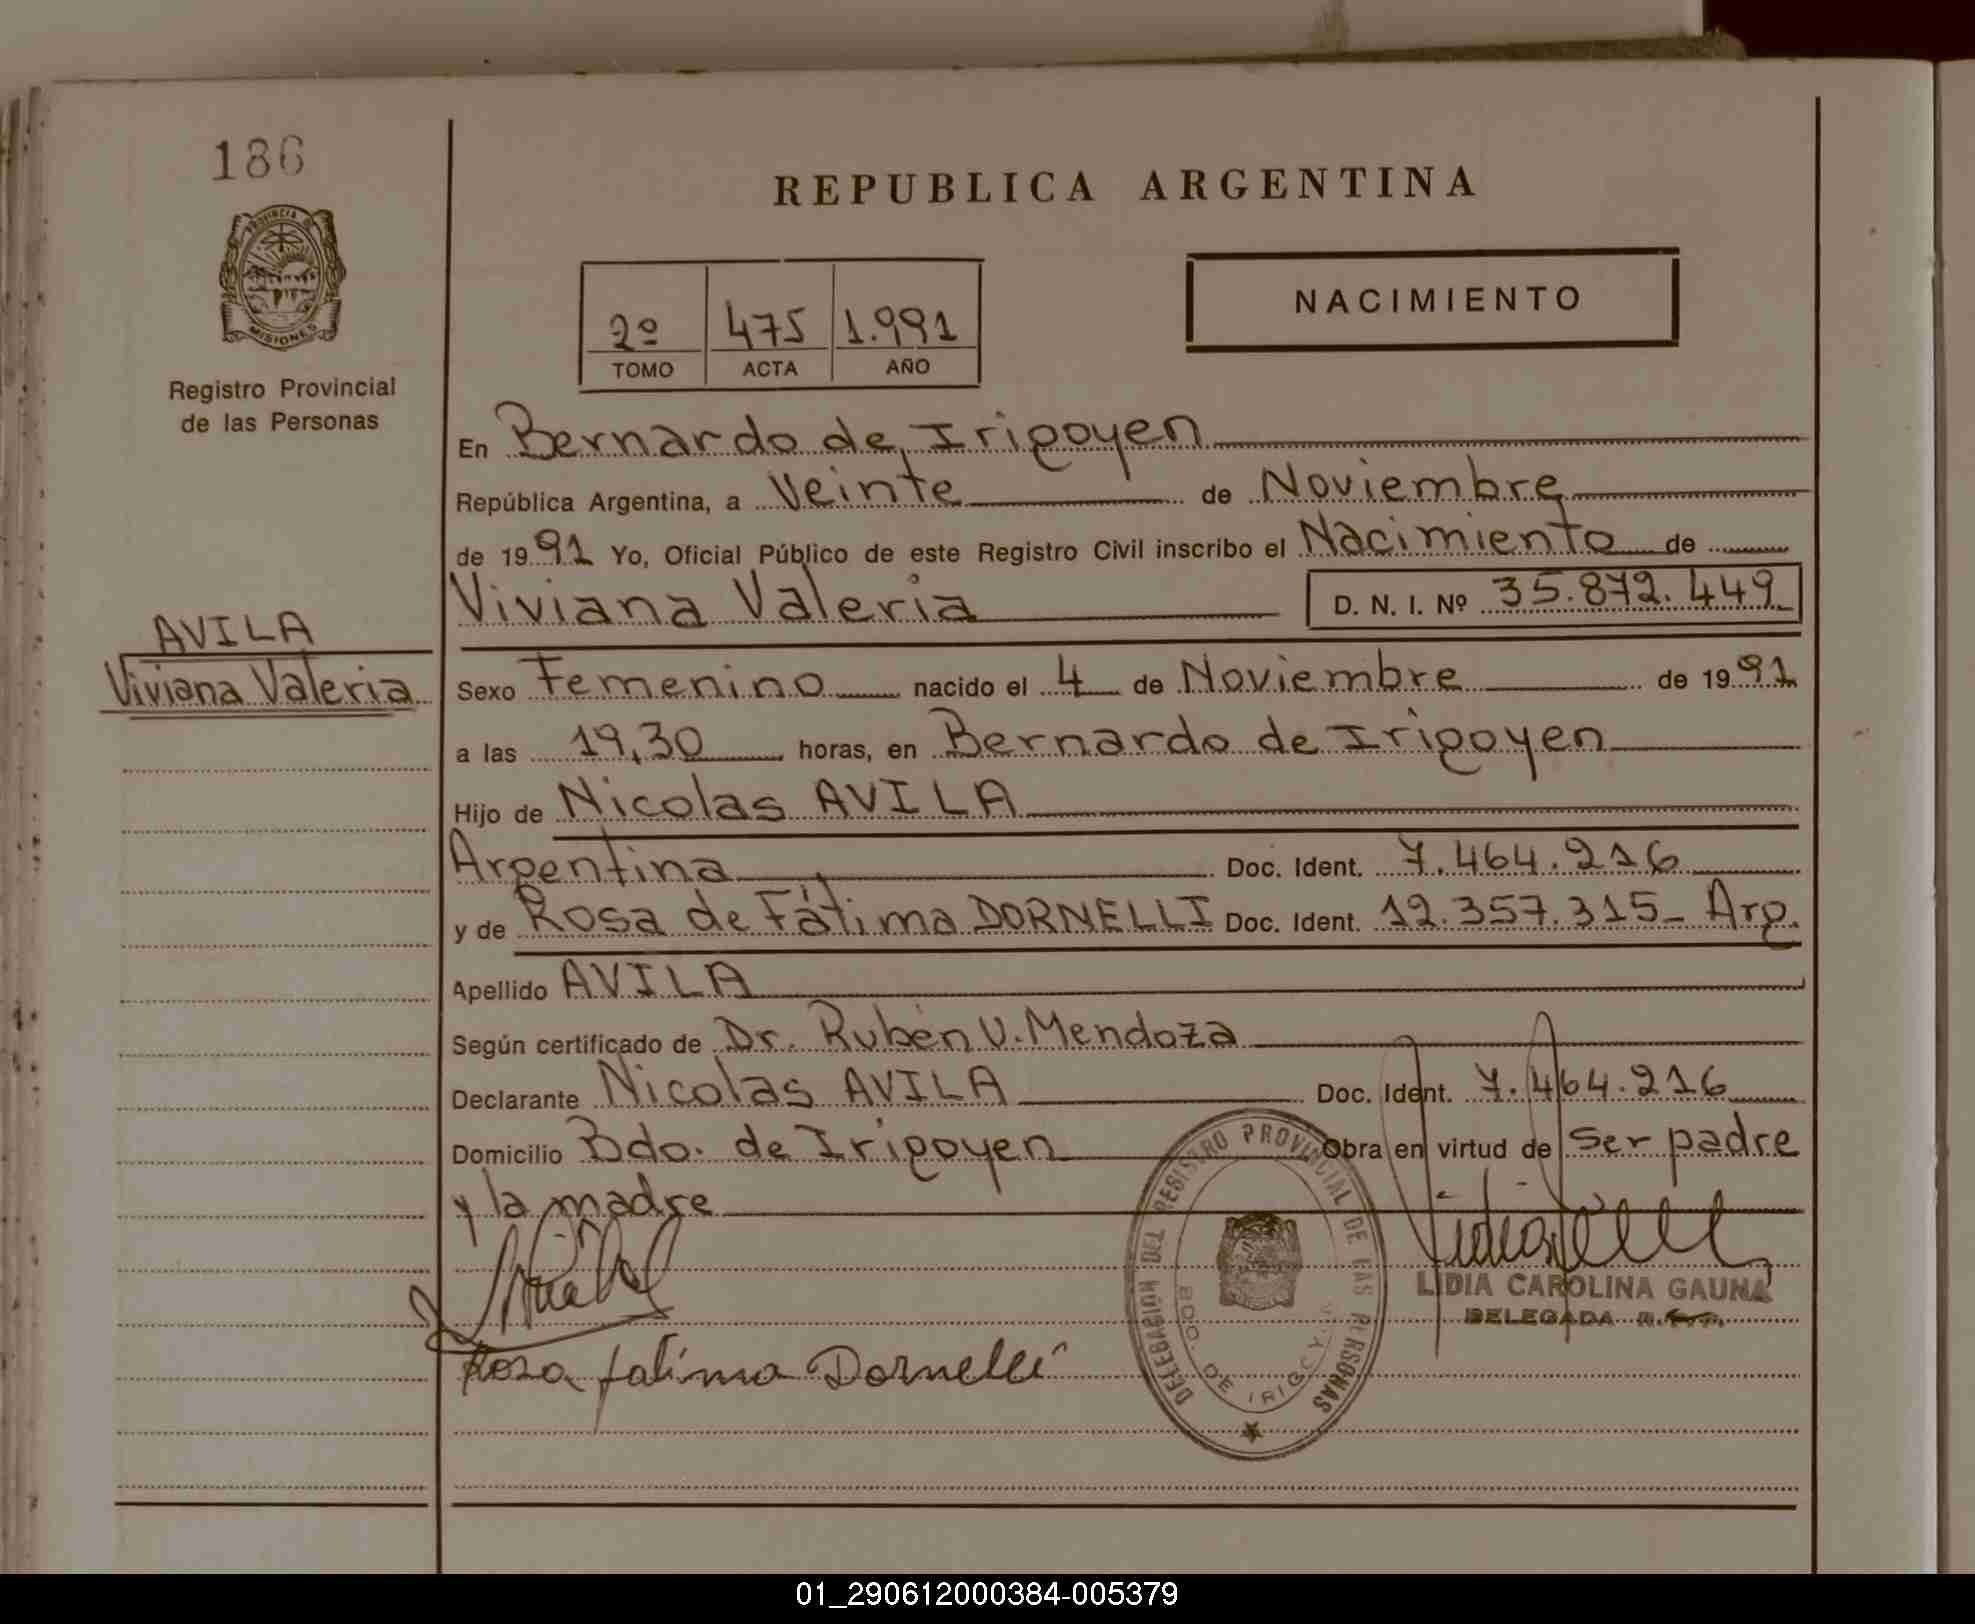 186
REPUBLICA ARGENTINA
PROVINCIA DE
MISIONES
Registro Provincial
de las Personas
NACIMIENTO
2º 475 1.991
TOMO ACTA AÑO
En Bernardo de Irigoyen
República Argentina, a Veinte de Noviembre
de 19 91 Yo, Oficial Público de este Registro Civil inscribo el Nacimiento de
Viviana Valeria D. N. I. Nº 35.872.449
AVILA
Viviana Valeria
Sexo Femenino nacido el 4 de Noviembre de 19 91
a las 19,30 horas, en Bernardo de Irigoyen
Hijo de Nicolas AVILA
Argentina Doc. Ident. 7.464.216
y de Rosa de Fátima DORNELLI Doc. Ident. 12.357.315- Arg.
Apellido AVILA
Según certificado de Dr. Rubén V. Mendoza
Declarante Nicolas AVILA Doc. Ident. 7.464.216
Domicilio Bdo. de Irigoyen Obra en virtud de Ser padre
y la madre
DELEGACIÓN DEL REGISTRO PROVINCIAL DE LAS PERSONAS
BDO. DE IRIGOYEN
LIDIA CAROLINA GAUNA
DELEGADA
Rosa fatima Dornelli
01_290612000384-005379